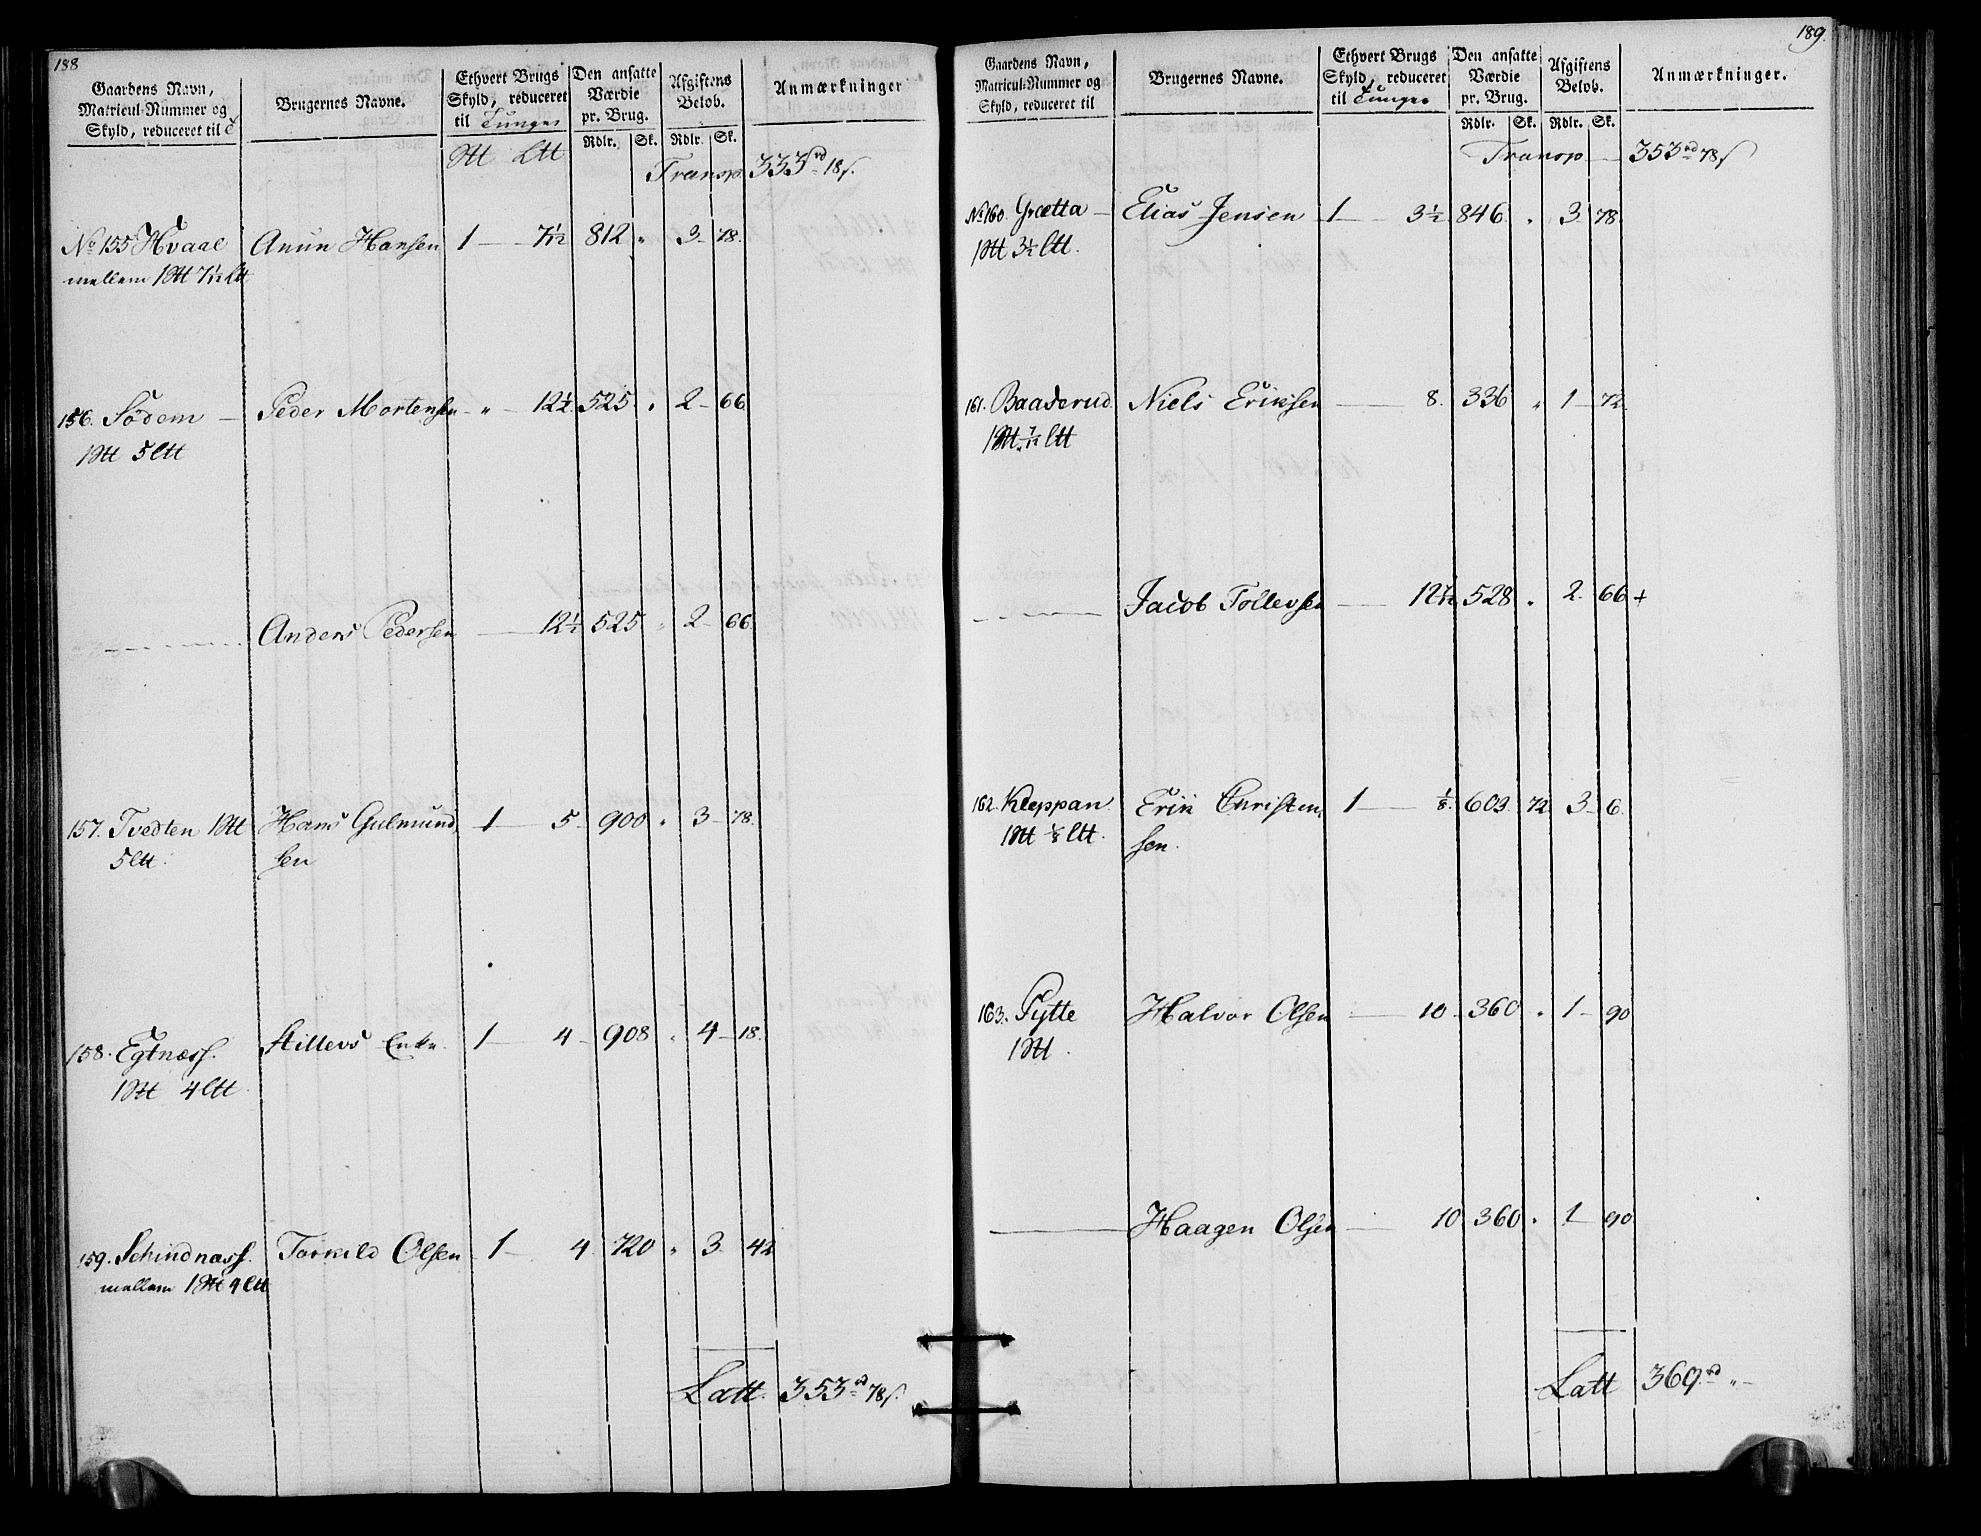 188
Gaardens Navn,
Matricul-Nummer og
Skyld, reduceret til
Brugernes Navne.
Ethvert Brugs
Skyld, reduceret
til Tunge
Den ansatte
Værdie
pr. Brug.
Rdlr. Sk.
Afgiftens
Beløb.
Rdlr. Sk.
Anmærkninger
Transp. 333 rd 18 s.
No 155 Hvaal Anun Hansen 1 7 1/12 812 " 3 78.
mellem 1 7 1/12
156. Södem Peder Mortensen " 12 1/2 525 " 2 66
1 5
Anders Pedersen 12 1/2 525 " 2 66
157. Tvedten 1 Hans Gulmund 1 5 900 " 3 78.
5 sen
158. Egtness. Stillevs Enke 1 4 908 " 4 18.
1 4
159. Schindness. Torkild Olsen 1 4 720 " 3 42
mellem 1 4
Latt. 353 rd 78 s.
189.
Gaardens Navn,
Matricul-Nummer og
Skyld, reduceret til
Brugernes Navne.
Ethvert Brugs
Skyld, reduceret
til Tunge
Den ansatte
Værdie
pr. Brug.
Rdlr. Sk.
Afgiftens
Beløb.
Rdlr. Sk.
Anmærkninger.
Transp 353 rd 78 s
No 160. Grætta Elias Jensen 1 3 1/2 846 " 3 78
1 3 1/2
161. Baaserud Niels Eriksen 8. 336 " 1 72
Jacob Tollevsen 528 " 2 66 +
162. Kleppan Erik Christen 1 1/8 603 72 3 6
1 1/8 sen.
163. Pytte Halvor Olsen 10 360 " 1 90
1
Haagen Olsen 10 360 " 1 90
Latt 369 rd "